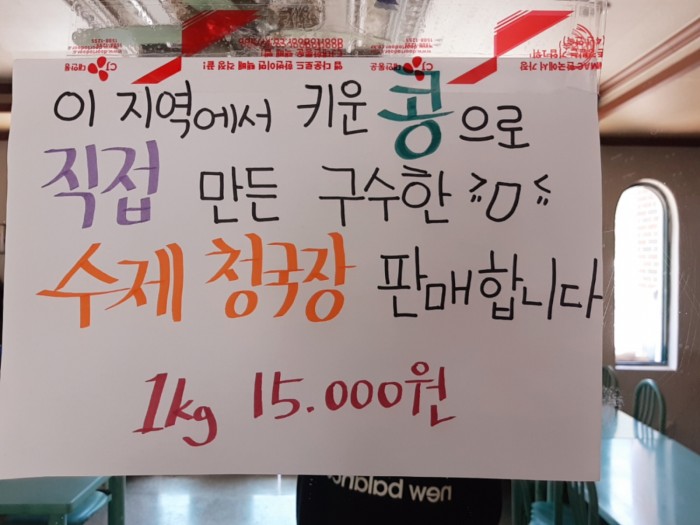 이 지역에서 키운 콩으로
직접 만든 구수한 >0<
수제 청국장 판매합니다
1kg 15.000원
new balance